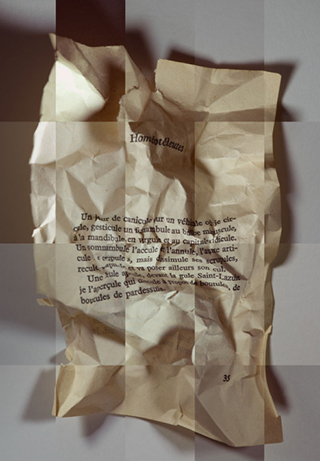 Homéotéleutes
Un jour de canicule sur un véhicule où je cir-
cule, gesticule un funambule au bulbe minuscule,
à la mandibule en virgule et au capitule ridicule.
Un somnambule l'accule et l'annule, l'autre arti-
cule : « crapule », mais dissimule ses scrupules,
recule, capitule et va poser ailleurs son cul.
Une hule aprule, devant la gule Saint-Lazule
je l'aperçule qui discule à propos de boutules, de
boutules de pardessule.
35